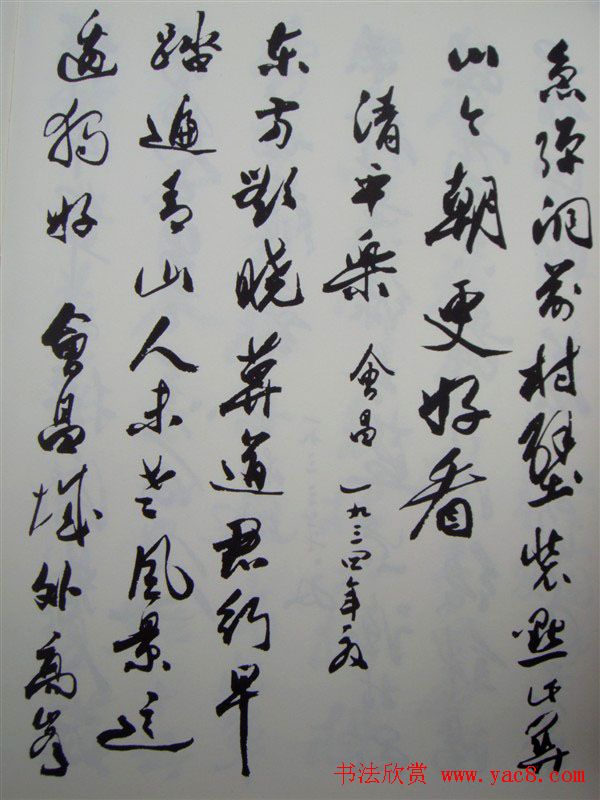 急弹洞前村壁装點此关
山今朝更好看
清平乐 會昌 一九三四年夏
东方欲晓莫道君行早
踏遍青山人未老风景这
边独好 會昌城外高峰
书法欣赏 www.yac8.com